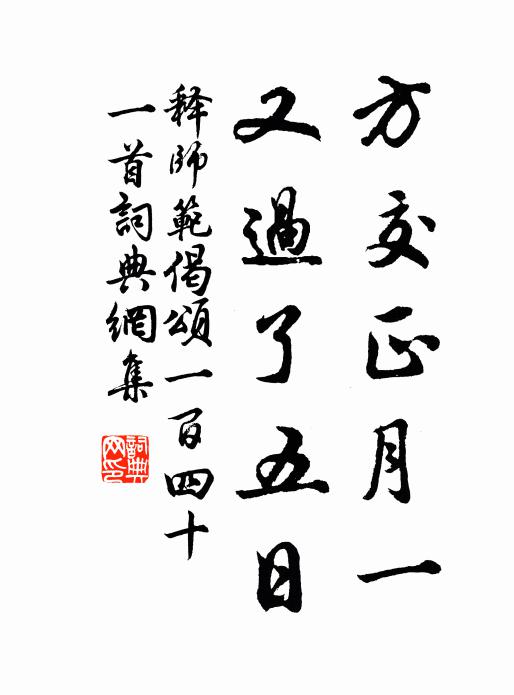 方交正月一
又過了五日
释師範偈頌一百四十
一首詞典網集
詞典
网印